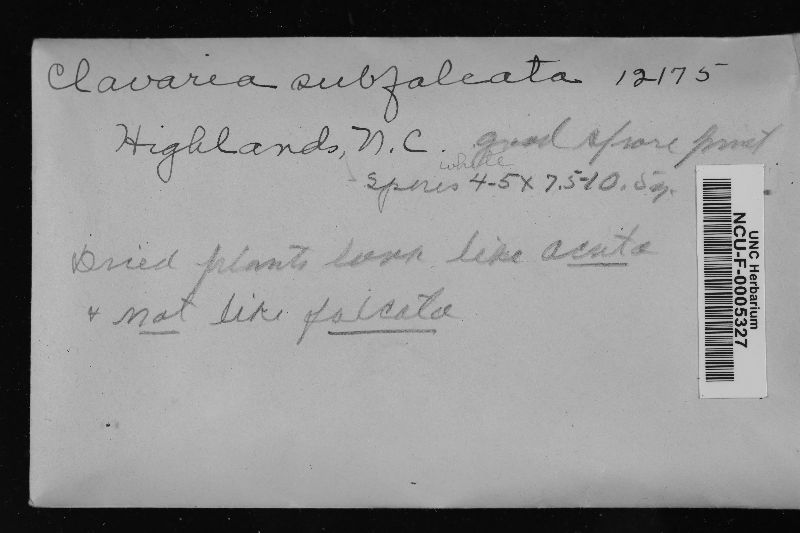 Clavaria subfalcata 12175
Highlands, N.C. good spore print
white
Spores 4-5 x 7.5-10.5µ.
Dried plants look like acuta
+ not like falcata
UNC Herbarium
NCU-F-0005327